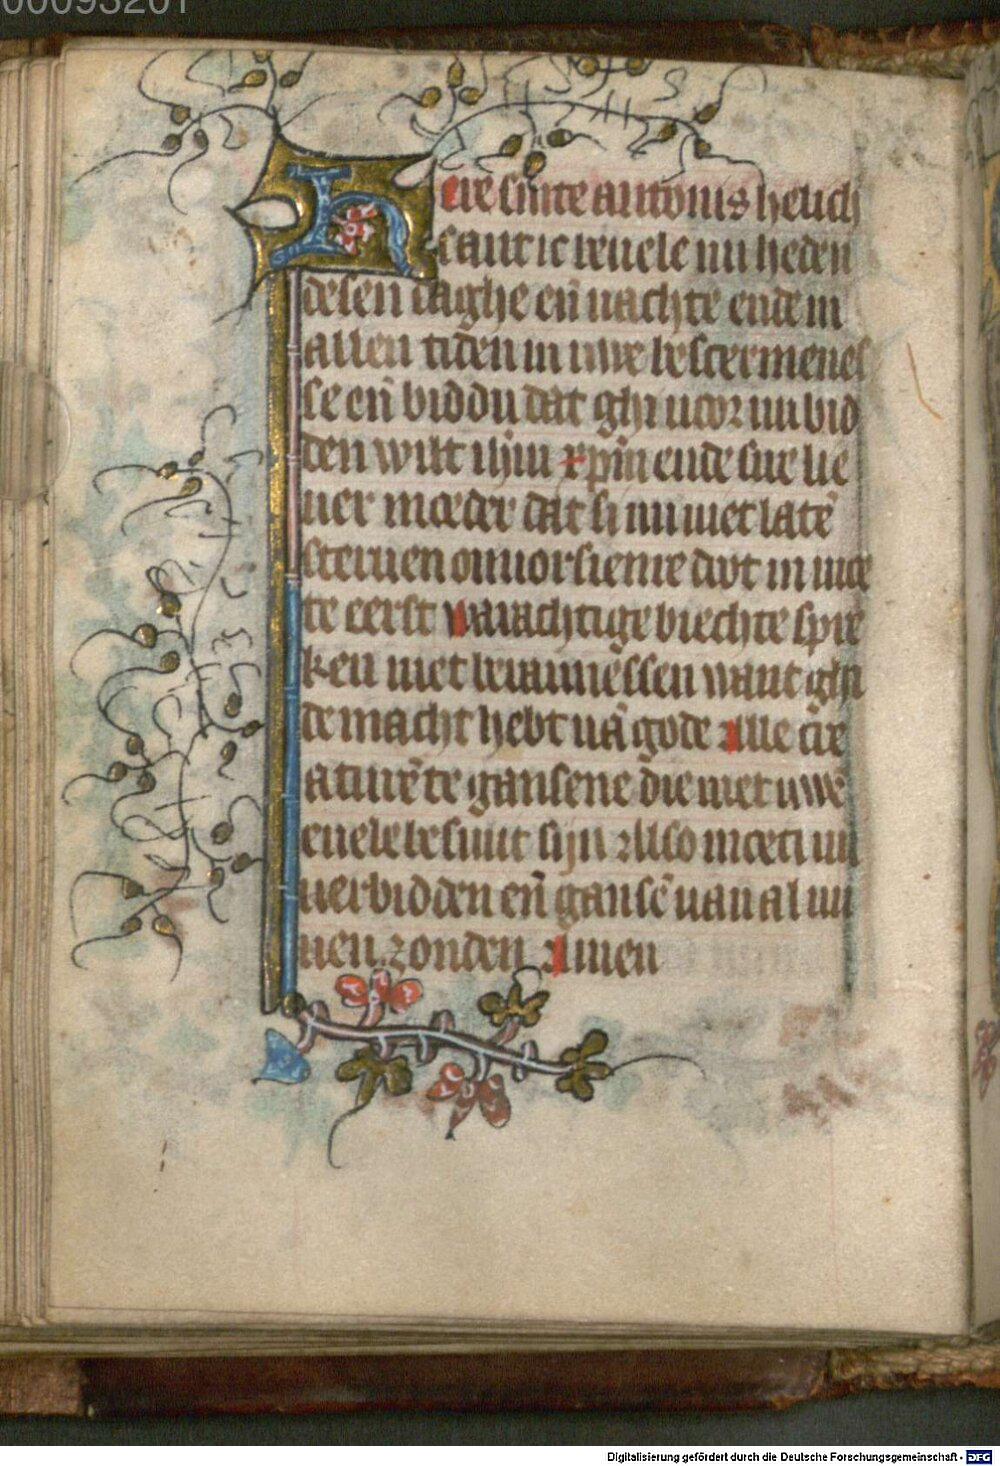 00093201
Here sinte antonis helich
sant ic beuele mi heden
desen daghe en̄ nachte ende in
allen tiden in uwe bescermenes
se en̄ bid du dat ghi uoor mi bid
den wilt ihm xpm̄ ende sire lie
uer moeder dat si mi niet latē
steruen onuorsienre doot in moe
te eerst warachtige biechte spre
ken met berauwenessen want ghi
de macht hebt uā gode Alle cre
aturē te gansene die met uwē
euele besmit sijn Also moeti mi
uerbidden en̄ gansē uan al mi
nen zonden Amen
Digitalisierung gefördert durch die Deutsche Forschungsgemeinschaft - DFG